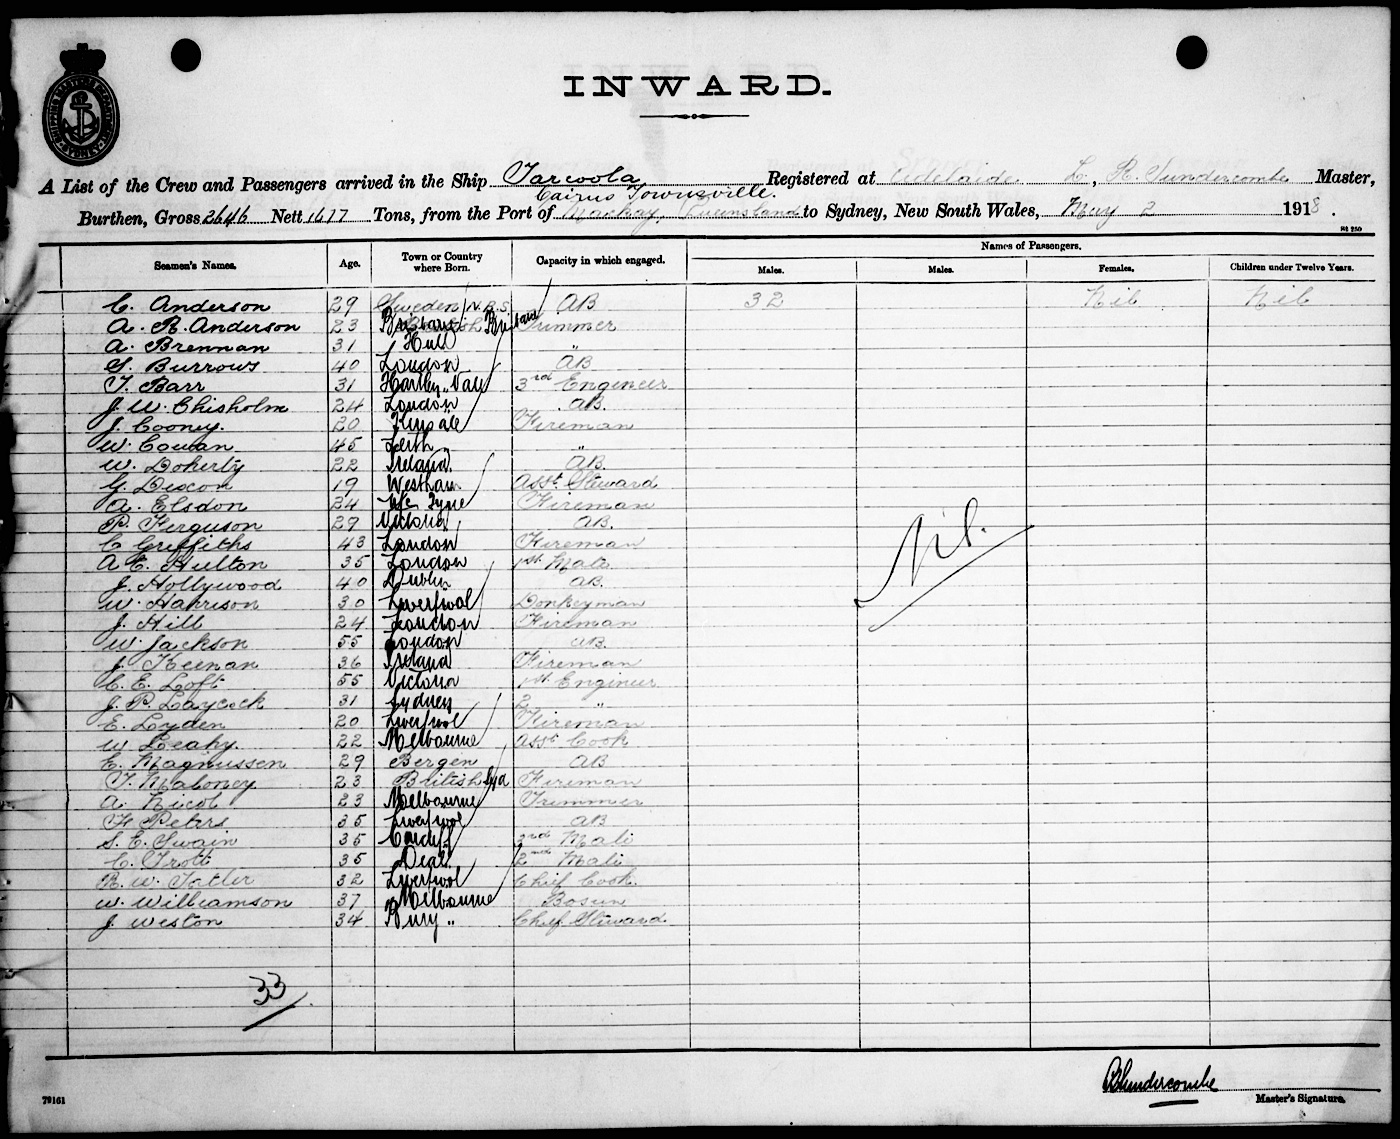 SHIPPING MASTER'S DEPARTMENT SYDNEY
INWARD.
A List of the Crew and Passengers arrived in the Ship Tarcoola Registered at Adelaide L. R. Lundercombe Master,
Cairns Townsville.
Burthen, Gross 2646 Nett 1617 Tons, from the Port of Mackay, Queensland to Sydney, New South Wales, May 2 1918.
Seamen's Names. Age. Town or Country where Born. Capacity in which engaged. Names of Passengers.
Males. Males. Females. Children under Twelve Years.
C. Anderson 29 Sweden N.B.S. AB 32 Nil Nil
A. R. Anderson 23 Brisbane British Trimmer
A. Brennan 31 Hull "
S. Burrows 40 London AB
T. Barr 31 Hartley Vale 3rd Engineer
J. W. Chisholm 24 London AB.
J. Cooney. 20 Kinsale Fireman
W. Cowan 45 Leith "
W. Doherty 22 Ireland AB.
G. Discon 19 Westham Asst. Steward
A. Elsdon 24 N/c Tyne Fireman
P. Ferguson 29 Victoria AB.
C Griffiths 43 London Fireman
A. E. Hulton 35 London 1st Mate
J. Hollywood 40 Dublin AB.
W. Harrison 30 Liverpool Donkeyman
J. Hill 24 London Fireman
W. Jackson 55 London AB.
J. Keenan 36 Ireland Fireman
C. E. Loft 55 Victoria 1st Engineer
J. P. Laycock 31 Sydney 2 "
E. Lyden 20 Liverpool Fireman
W. Leahy. 22 Melbourne Asst Cook
E. Magnussen 29 Bergen AB
T. Maloney 23 British Syd Fireman
A. Nicol 23 Melbourne Trimmer
F. Peters 35 Liverpool AB
S. E. Swain 35 Cardiff 3rd Mate
C. Trott 35 Deal 2nd Mate
R. W. Tatler 32 Liverpool Chief Cook.
W. Williamson 37 Melbourne Bosun
J. Weston 34 Bury " Chief Steward
Nil.
33
Lundercombe
79161 Master's Signature.